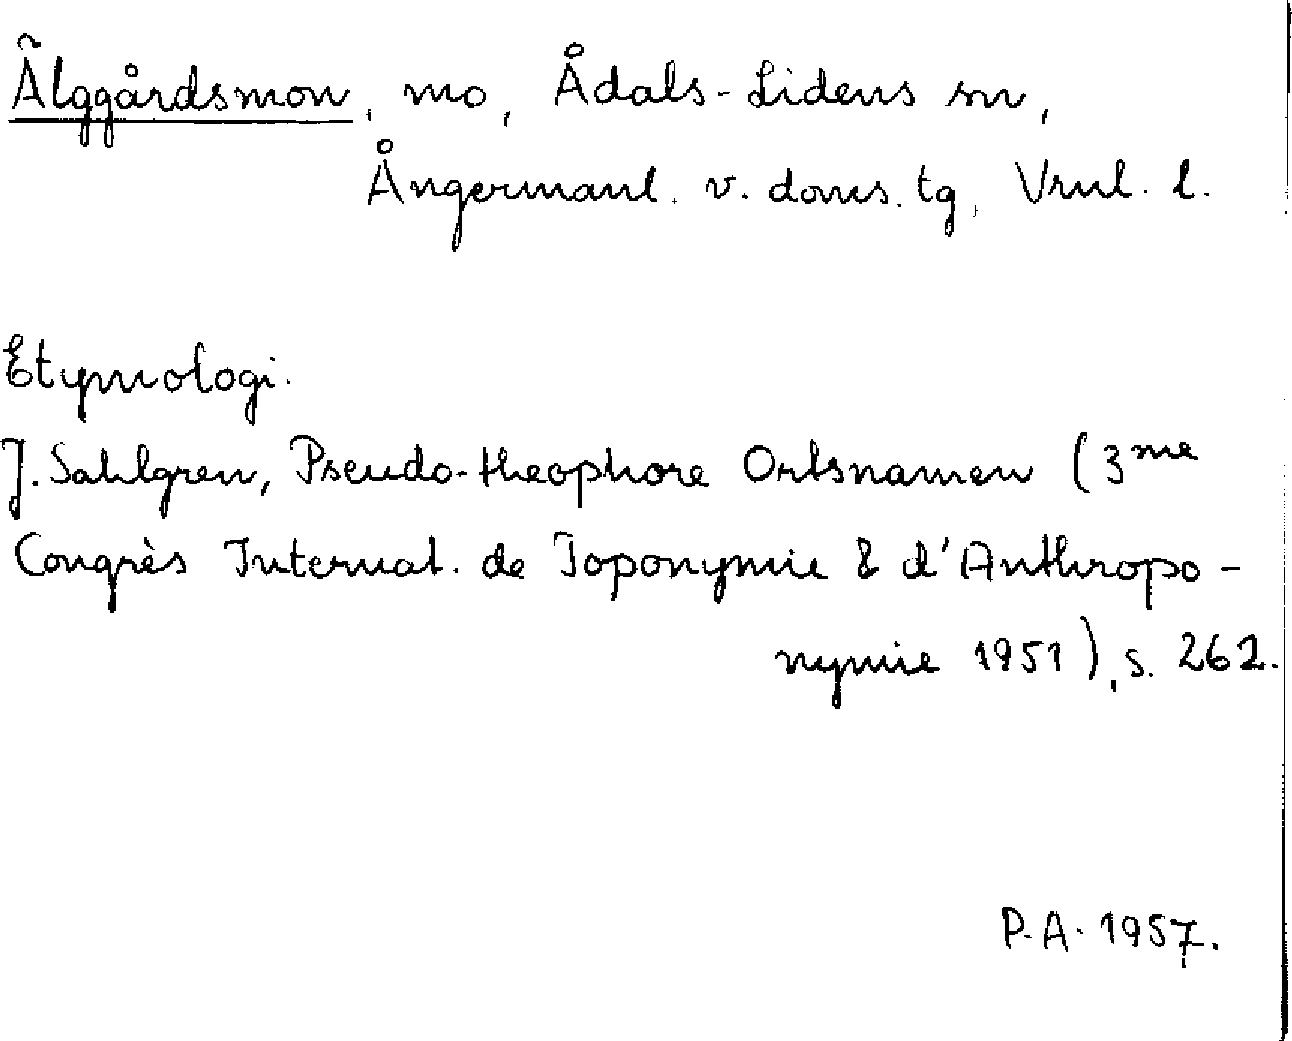 Älggårdsmon, mo, Ådals-Lidens sn,
Ångermanl. v. doms. tg, Vrnl. l.
Etymologi.
J. Sahlgren, Pseudo-theophore Ortsnamen (3me
Congrès Internat. de Toponymie & d'Anthropo-
nymie 1951), s. 262.
P.A. 1957.